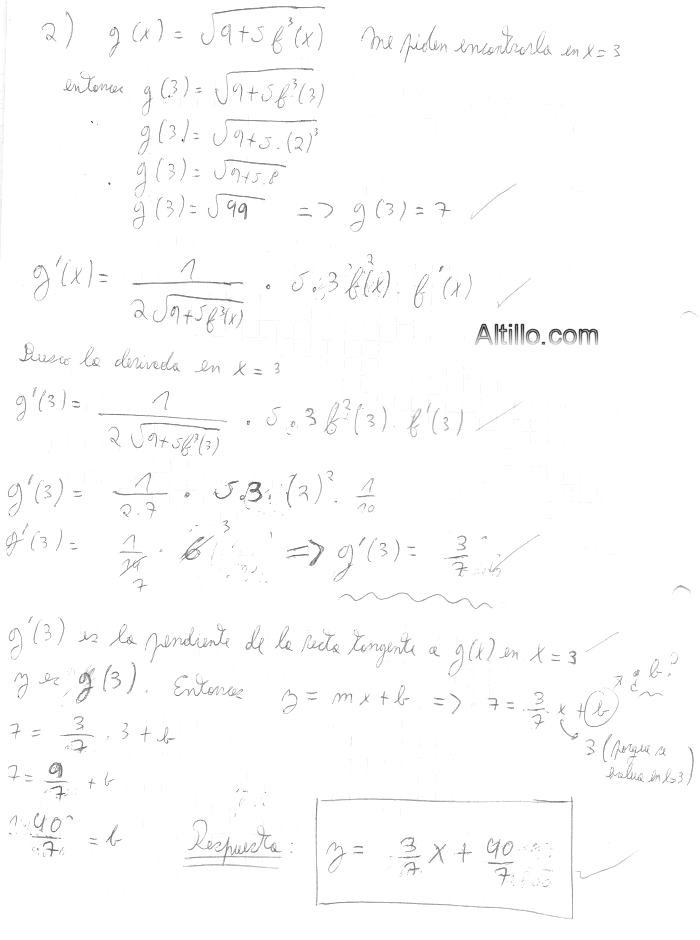 2) g(x) = √9+5f³(x) Me piden encontrarla en x=3
entonces g(3) = √9+5f³(3)
g(3) = √9+5.(2)³
g(3) = √9+5.8
g(3) = √99 => g(3) = 7
g'(x) = 1/2√9+5f³(x) . 5.3f²(x). f'(x)
Altillo.com
Busco la derivada en x = 3
g'(3) = 1/2√9+5f³(3) . 5.3f²(3). f'(3)
g'(3) = 1/2.7 . 5.3.(2)². 1/10
g'(3) = 1/14 7 . 6 3 => g'(3) = 3/7
g'(3) es la pendiente de la recta tangente a g(x) en x = 3
y es g(3). Entonces y = mx+b => 7 = 3/7 x + b ¿b?
7 = 3/7 . 3 + b 3 (porque se evalua en x=3)
7 = 9/7 + b
40/7 = b Respuesta: y = 3/7 x + 40/7